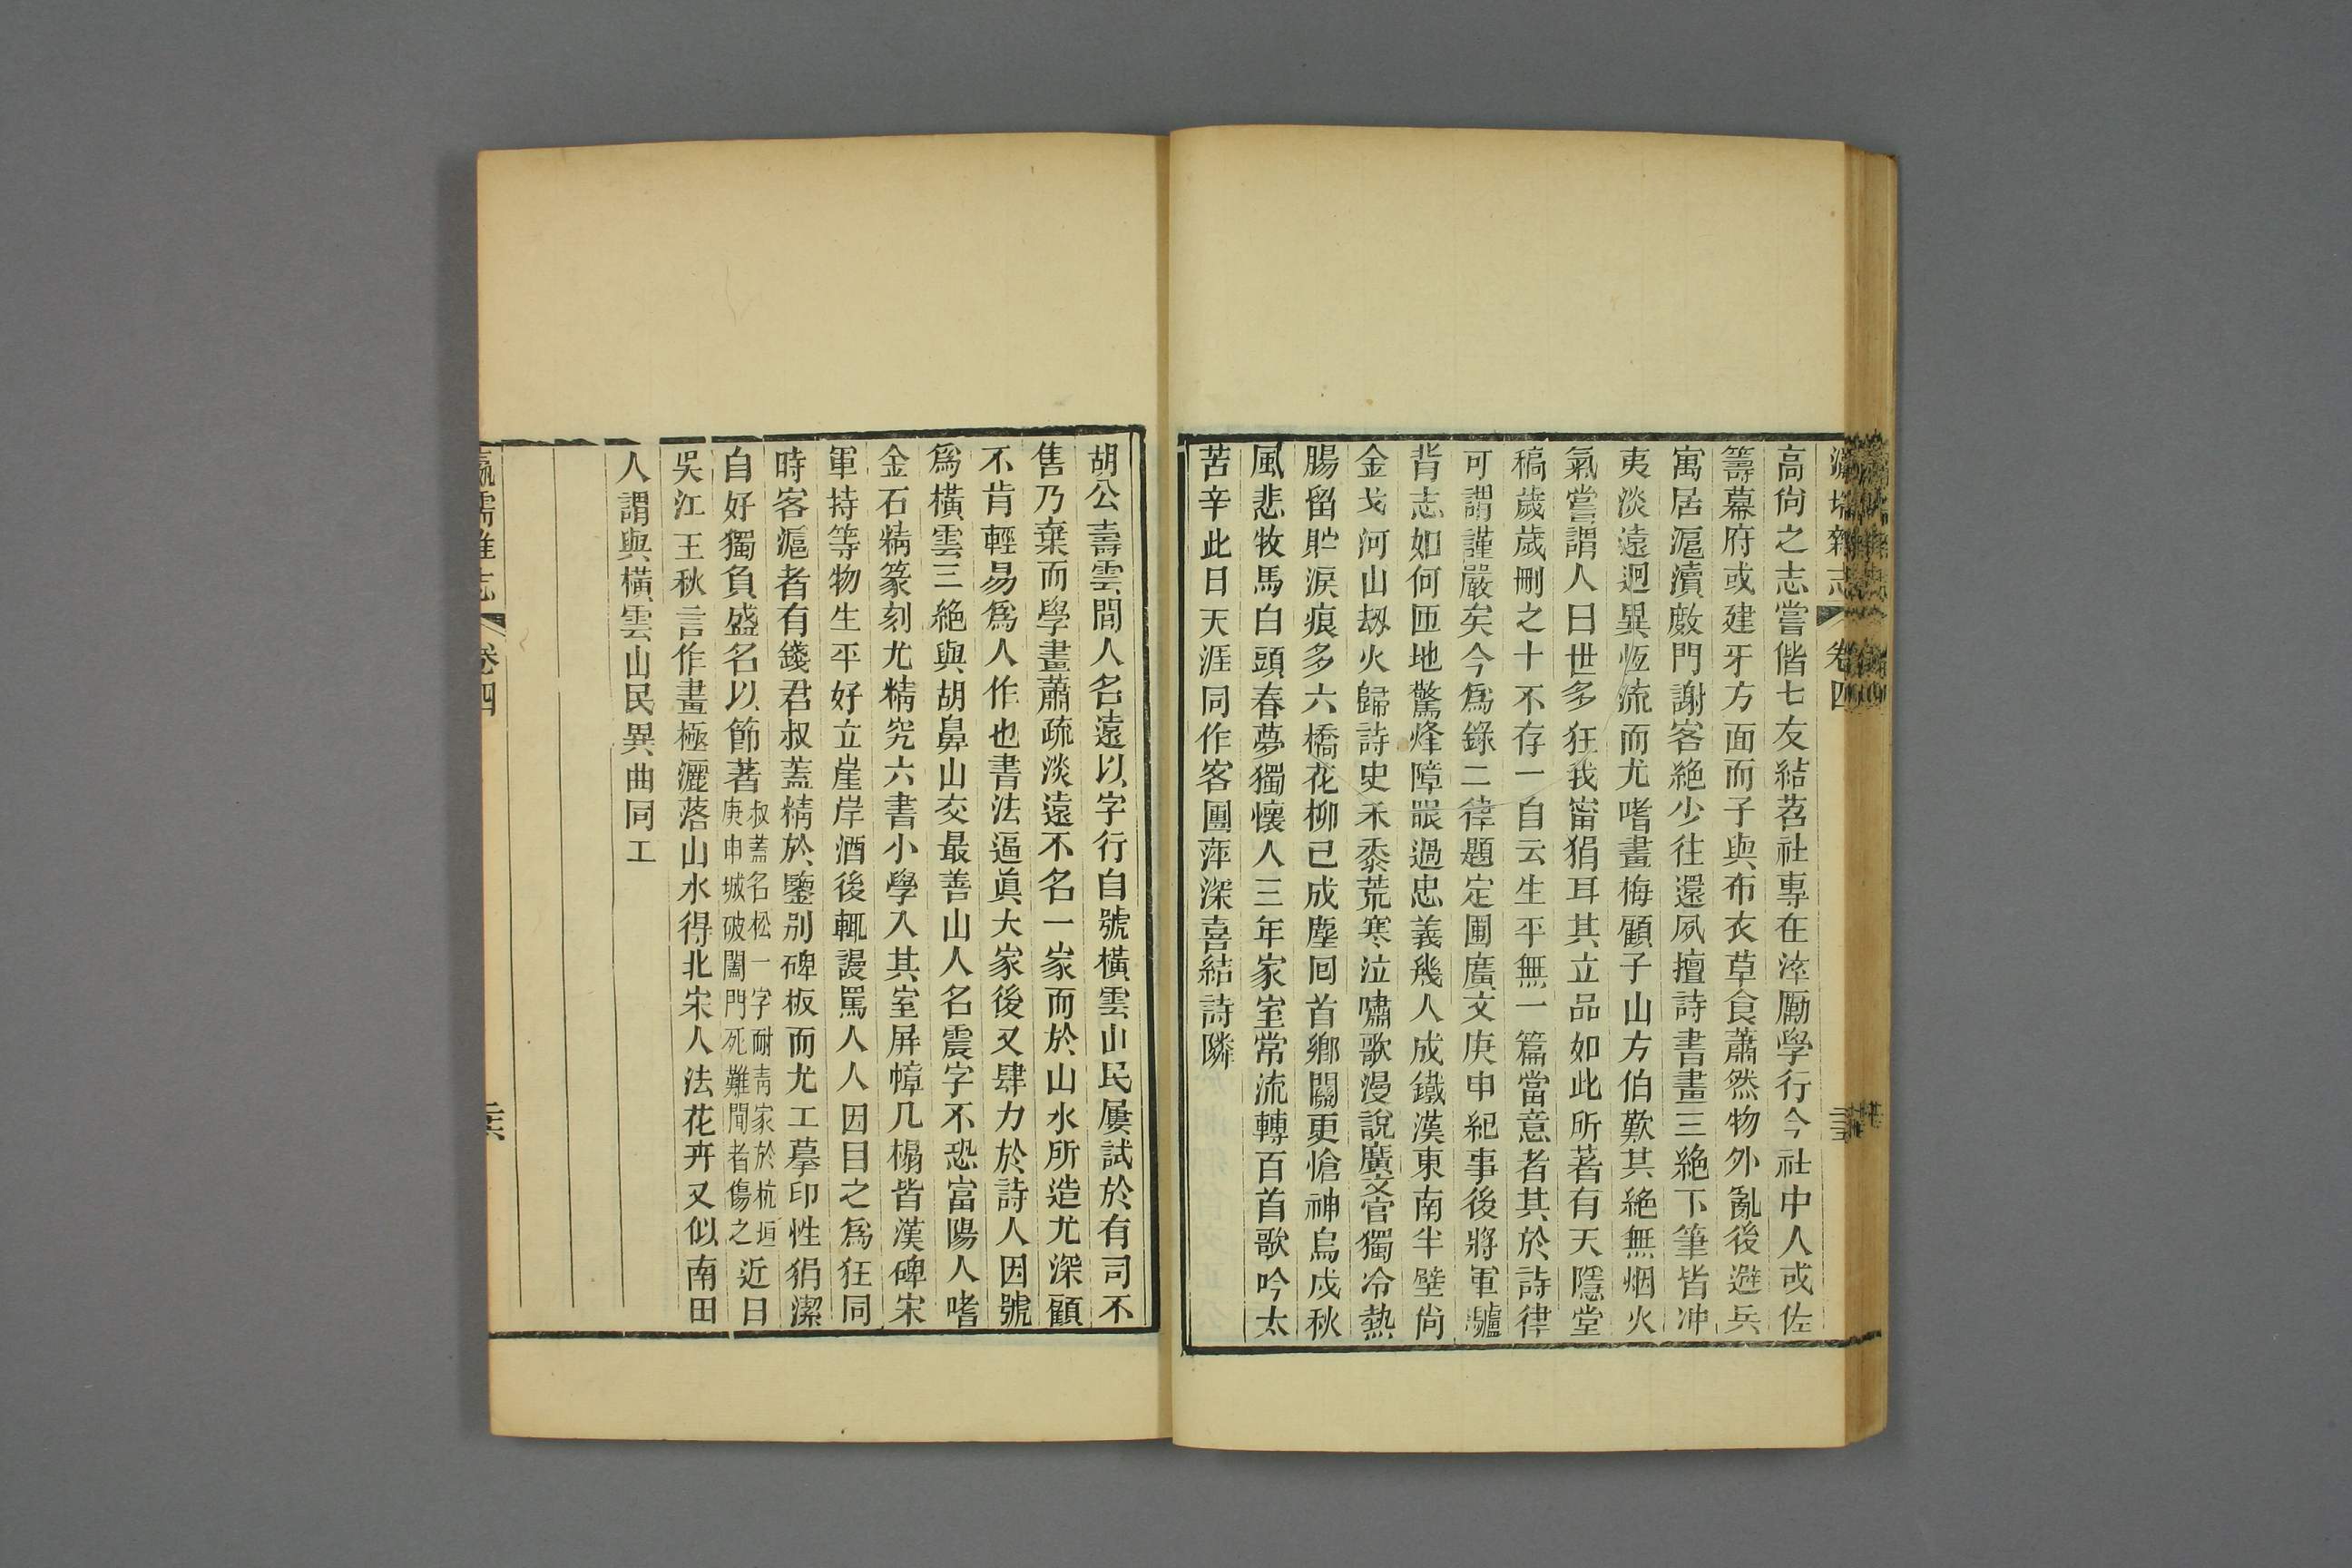 高尙之志嘗偕七友結苕社專在淬厲學行今社中人或佐
籌幕府或建牙方面而子與布衣草食蕭然物外亂後避兵
寓居滬瀆敲門謝客絶少往還夙擅詩書畫三絶下筆皆冲
夷淡遠迥異恆流而尤嗜畫梅顧子山方伯歎其絶無烟火
氣嘗謂人曰世多狂我甯狷耳其立品如此所著有天隱堂
稿歲歲刪之十不存一自云生平無一篇當意者其於詩律
可謂謹嚴矣今爲錄二律題定圃廣文庚申紀事後將軍
背志如何匝地驚烽障眼過忠義幾人成鐵漢東南半壁尙
金戈河山刼火歸詩史禾黍荒寒泣嘯歌漫說廣文官獨冷熱
腸留貯淚痕多六橋花柳已成塵回首鄉關更愴神烏戍秋
風悲牧馬白頭春夢獨懷人三年家室常流轉百首歌吟太
苦辛此日天涯同作客團萍深喜結詩隣
胡公壽雲間人名遠以字行自號橫雲山民屢試於有司不
售乃棄而學畫蕭疏淡遠不名一家而於山水所造尤深顧
不肯輕易爲人作也書法逼眞大家後又肆力於詩人因號
爲橫雲三絶與胡鼻山交最善山人名震字不恐富陽人嗜
金石精篆刻尤精究六書小學入其室屏幛几榻皆漢碑宋
軍持等物生平好立崖岸酒後輒謾罵人人因目之爲狂同
時客滬者有錢君叔蓋精於鑒别碑板而尤工摹印性狷潔
自好獨負盛名以節著叔蓋名松一字耐靑家於杭垣庚申城破闔門死難聞者傷之近日
吳江王秋言作畫極灑落山水得北宋人法花卉又似南田
人謂與橫雲山民異曲同工
瀛壖雜志 卷四